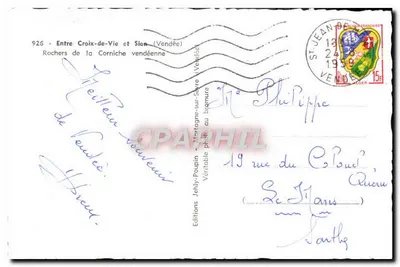 926 - Entre Croix-de-Vie et Sion (Vendée)
Rochers de la Corniche vendéenne
Meilleur souvenir
de Vendée.
Editions Jehly-Poupin - Mortagne-sur-Sèvre (Vendée)
Véritable photo au bromure
ST JEAN-DE
1959
VENDEE
15F
Mr Philippe
19 rue du Colonel
Le Mans
Sarthe
CPAPHIL.COM